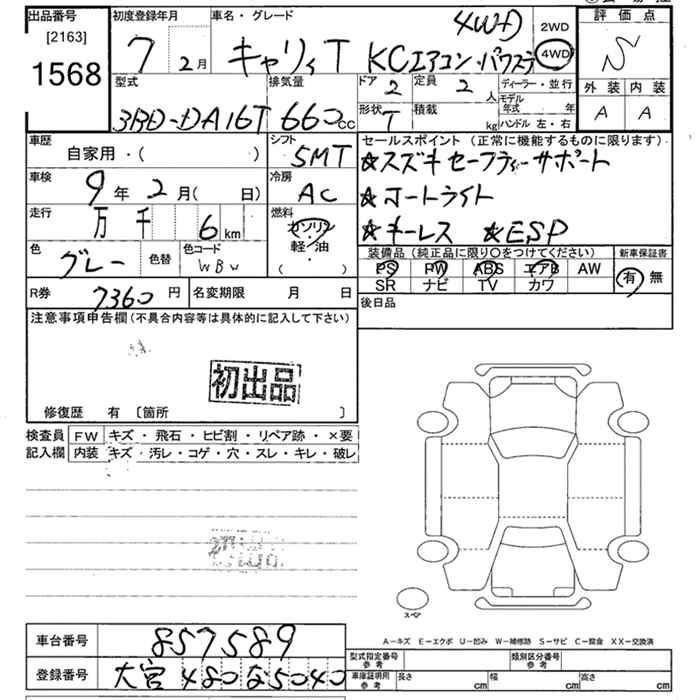 出品番号 [2163] 1568
初度登録年月 7 2月
車名・グレード キャリィT KCエアコン・パワステ 4WD
2WD 4WD
評価点 S
外装 内装
A A
型式 3BD-DA16T
排気量 660cc
ドア 2 定員 2人
ディーラー・並行
形状 T 積載 kg
モデル年式 年
ハンドル 左・右
車歴 自家用・( )
シフト 5MT
セールスポイント (正常に機能するものに限ります)
☆スズキセーフティーサポート
☆オートライト
☆キーレス ☆ESP
車検 9年 2月( 日)
冷房 AC
走行 万 千 6km
燃料 ガソリン 軽・油 ( )
色 グレー 色替 色コード WBW
装備品 (純正品に限り○をつけてください) 新車保証書
PS PW ABS エアB AW 有 無
SR ナビ TV カワ
R券 7360円 名変期限 月 日
後日品
注意事項申告欄 (不具合内容等は具体的に記入して下さい)
初出品
修復歴 有 〔箇所 〕
検査員 FW キズ・飛石・ヒビ割・リペア跡・×要
記入欄 内装 キズ・汚レ・コゲ・穴・スレ・キレ・破レ
スペア
A-キズ E-エクボ U-凹み W-補修跡 S-サビ C-腐食 XX-交換済
車台番号 857589
登録番号 大宮 480 な 5040
型式指定番号 参考 類別区分番号 参考
車庫証明用 参考 長さ cm 幅 cm 高さ cm